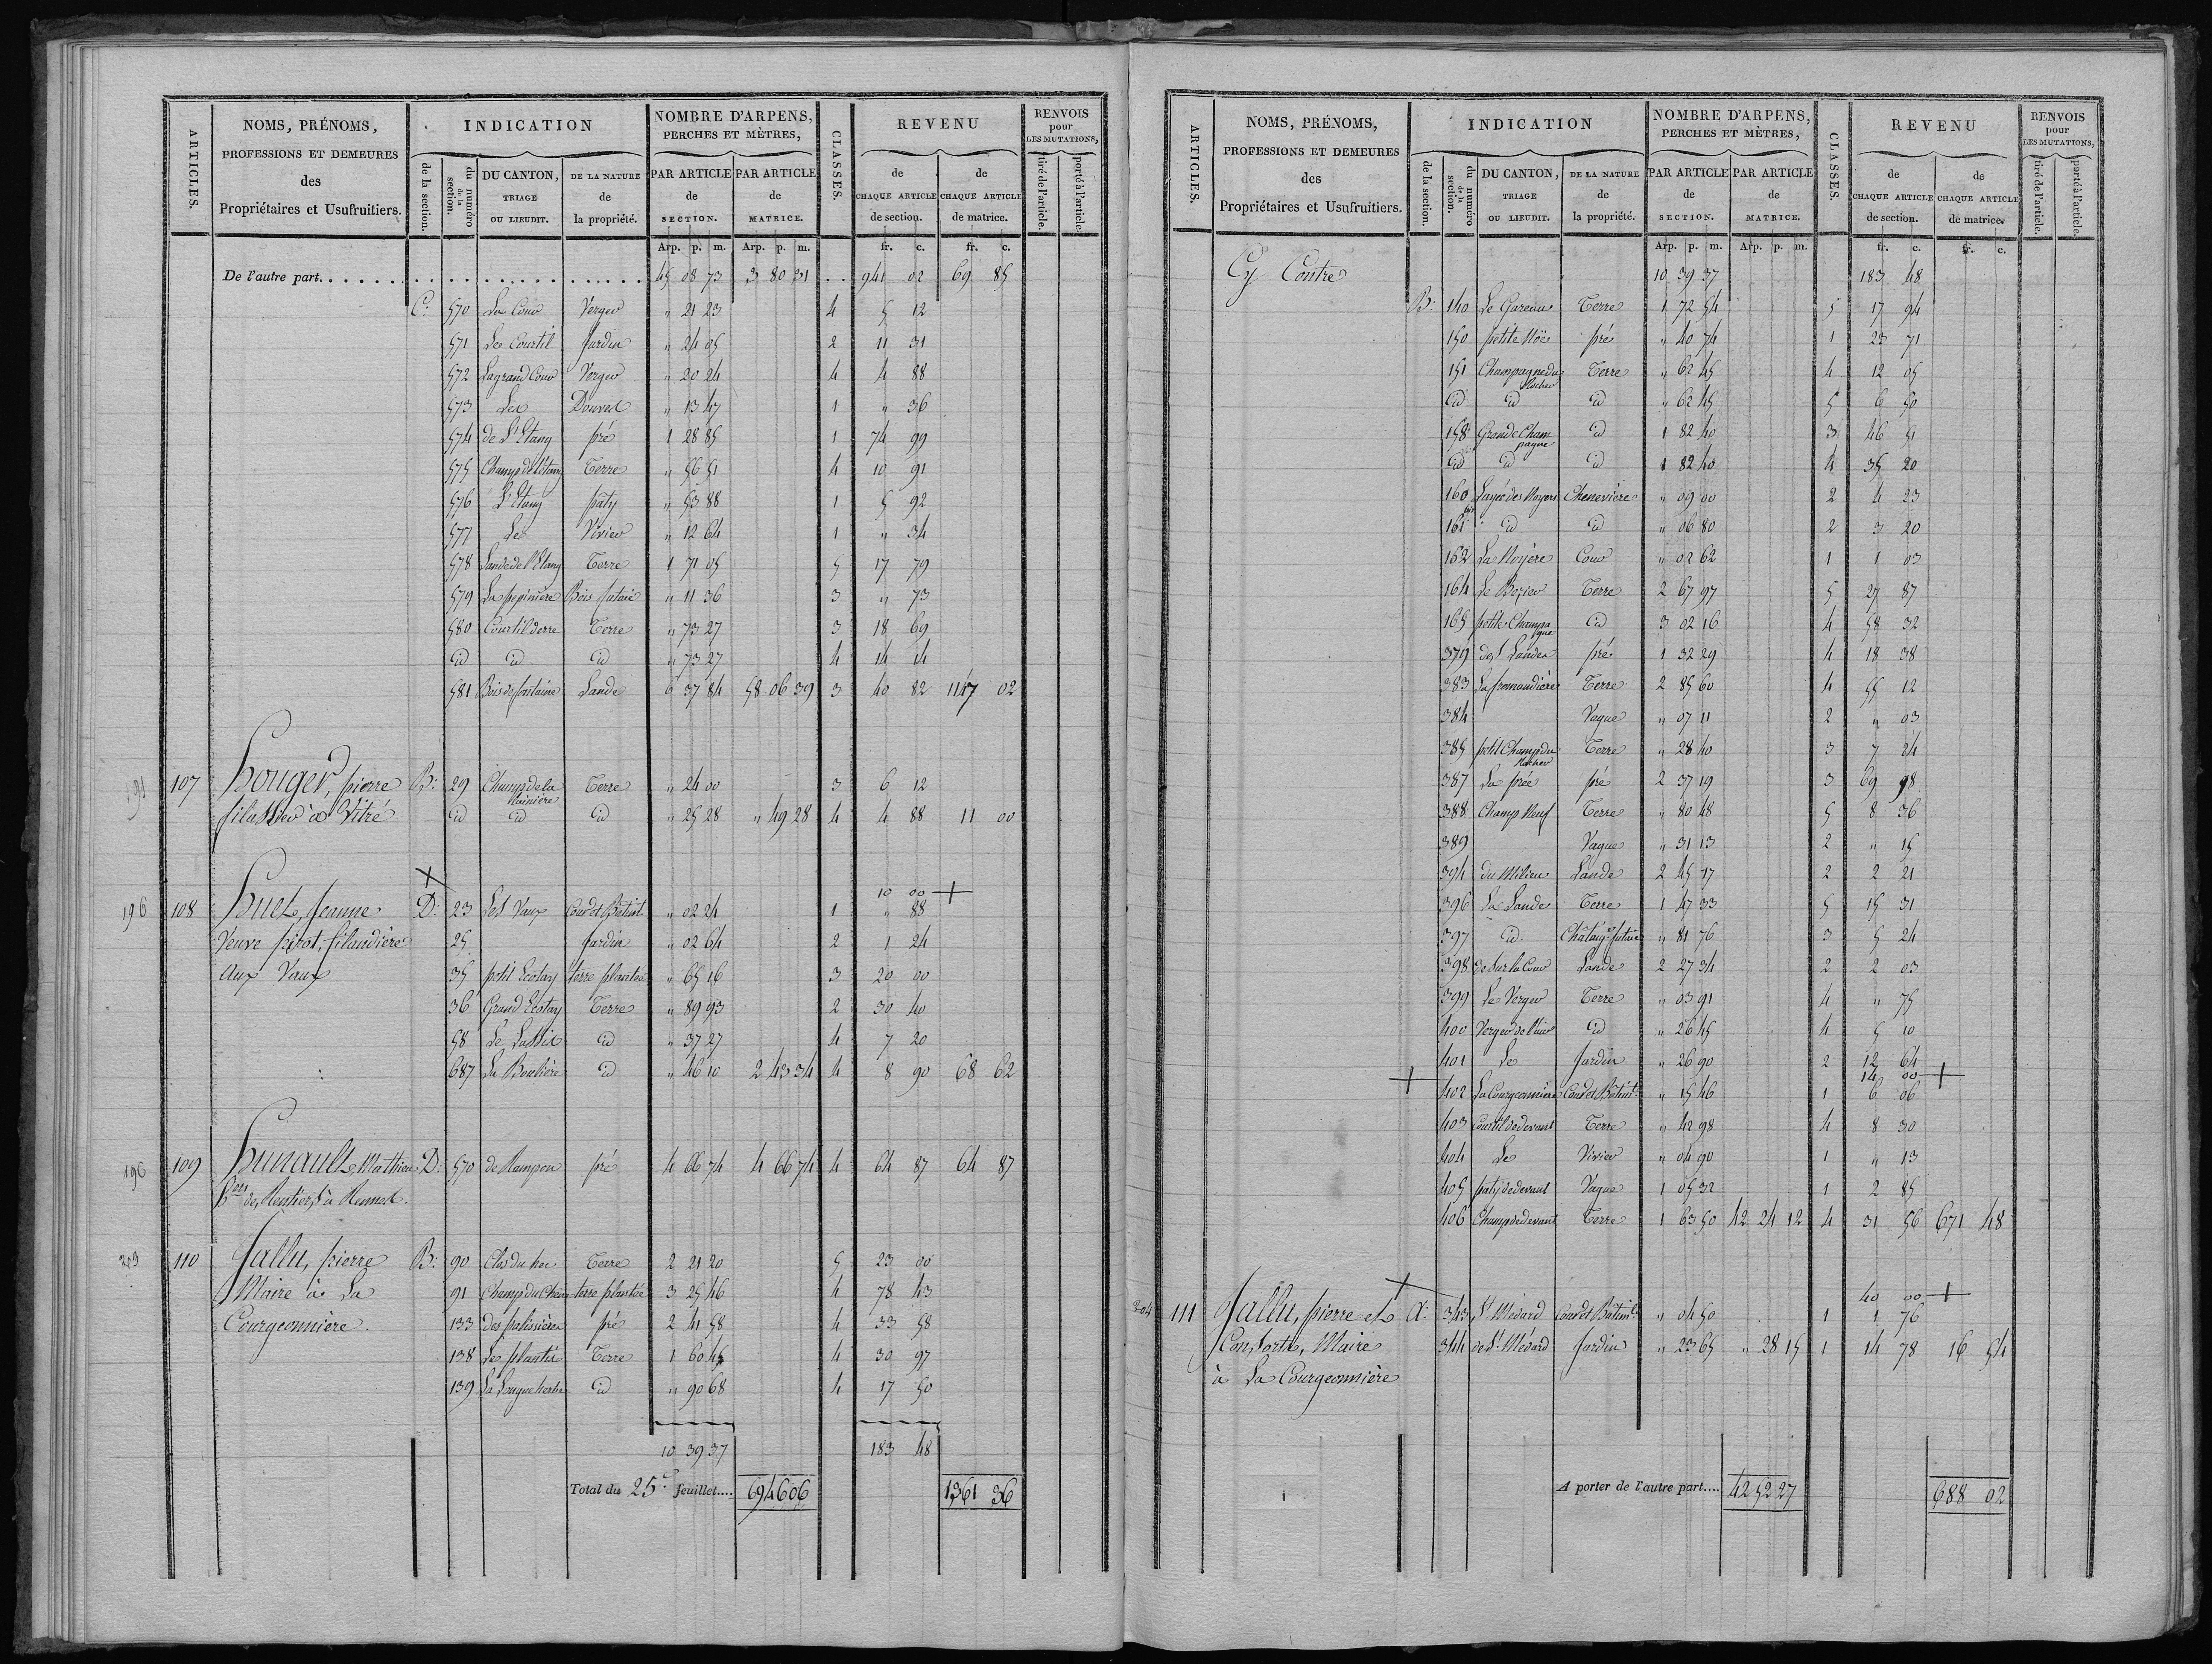 ARTICLES.
NOMS, PRÉNOMS,
PROFESSIONS ET DEMEURES
des
Propriétaires et Usufruitiers.
INDICATION
de la section.
du numéro de la section.
DU CANTON,
TRIAGE
OU LIEUDIT.
DE LA NATURE
de
la propriété.
NOMBRE D'ARPENS,
PERCHES ET MÈTRES,
PAR ARTICLE
de
SECTION.
PAR ARTICLE
de
MATRICE.
CLASSES.
REVENU
de
CHAQUE ARTICLE
de section.
de
CHAQUE ARTICLE
de matrice.
RENVOIS
pour
LES MUTATIONS,
tiré de l'article.
porté à l'article.
Arp. p. m. Arp. p. m. fr. c. fr. c.
De l'autre part. 45 08 73 3 80 31 941 02 69 85
C. 570 La Cour Verger " 21 23 4 5 12
571 Le Courtil Jardin " 24 05 2 11 31
572 La grand Cour Verger " 20 24 4 4 88
573 Les Douves " 13 47 1 " 36
574 de L'Etang pré 1 28 85 1 74 99
575 Champ de l'étang Terre " 56 51 4 10 91
576 L'Etang paty " 53 88 1 5 92
577 Le Vivier " 12 64 1 " 34
578 Lande de l'Etang Terre 1 71 05 5 17 79
579 La pepinière Bois futaie " 11 36 3 " 73
580 Courtil derre Terre " 73 27 3 18 69
id id id " 73 27 4 14 14
581 Bois de fontaine Lande 6 37 84 58 06 39 3 40 82 1147 02
191 107 Houger, pierre B. 29 Champ de la Terre " 24 00 3 6 12
filassier à Vitré id id id " 25 28 " 49 28 4 4 88 11 00
10 00 +
196 108 Huet, Jeanne D. 23 Les Vaux Cour et Bâtimt. " 02 24 1 " 88
Veuve pirot, filandière 25 Jardin " 02 64 2 1 24
Aux Vaux 35 petit Ecotay terre plantée " 65 16 3 20 00
36 Grand Ecotay Terre " 89 93 2 30 40
58 Le id " 37 27 4 7 20
687 La Boulière id " 46 10 2 43 34 4 8 90 68 62
196 109 Hunault, Mathieu D. 570 de Rampon pré 4 66 74 4 66 74 4 64 87 64 87
Rentiers à Rennes.
203 110 Jallu, pierre B. 90 Clos du Terre 2 21 20 5 23 00
Maire à La 91 Champ du terre plantée 3 25 46 4 78 43
Courgeonnière. 133 des palissières pré 2 41 58 4 33 58
138 Les plantis Terre 1 60 45 4 30 97
139 La Longue herbe id " 90 68 4 17 50
10 39 37 183 48
Total du 25e. feuillet.... 69 46 06 1361 36
ARTICLES.
NOMS, PRÉNOMS,
PROFESSIONS ET DEMEURES
des
Propriétaires et Usufruitiers.
INDICATION
de la section.
du numéro de la section.
DU CANTON,
TRIAGE
OU LIEUDIT.
DE LA NATURE
de
la propriété.
NOMBRE D'ARPENS,
PERCHES ET MÈTRES,
PAR ARTICLE
de
SECTION.
PAR ARTICLE
de
MATRICE.
CLASSES.
REVENU
de
CHAQUE ARTICLE
de section.
de
CHAQUE ARTICLE
de matrice.
RENVOIS
pour
LES MUTATIONS,
tiré de l'article.
porté à l'article.
Arp. p. m. Arp. p. m. fr. c. fr. c.
Cy Contre 10 39 37 183 48
B. 140 Le Gareau Terre 1 72 54 5 17 94
150 petite Noë pré " 40 74 1 23 71
151 Champagne du Rocher Terre " 62 45 4 12 05
id id id " 62 45 5 6 50
158 Grande Champagne id 1 82 40 3 46 51
id id id 1 82 40 4 35 20
160 des Noyers Chenevière " 09 00 2 4 23
161 id id " 06 80 2 3 20
162 La Noyère Cour " 02 62 1 1 03
164 Le Terre 2 67 97 5 27 87
165 petite Champagne id 3 02 16 4 58 32
379 des Landes pré 1 32 29 4 18 38
383 La fromaudière Terre 2 85 60 4 55 12
384 Vague " 07 11 2 " 03
385 petit Champ du Rocher Terre " 28 40 3 7 24
387 La prée pré 2 37 19 3 69 98
388 Champ Neuf Terre " 80 48 5 8 36
389 Vague " 31 13 2 " 15
394 du Milieu Lande 2 45 17 2 2 21
396 La Lande Terre 1 47 33 5 15 31
397 id. Châtaigr. futaie " 81 76 3 5 24
398 de Sur la Cour Lande 2 27 34 2 2 03
399 Le Verger Terre " 03 91 4 " 75
400 Verger de l'aire id " 26 45 4 5 10
401 Le Jardin " 26 90 2 12 64
14 00 +
+ 402 La Courgeonnière Cour et Bâtimt. " 15 46 1 6 06
403 Courtil de devant Terre " 42 98 4 8 30
404 Le Vivier " 04 90 1 " 13
405 paty de devant Vague 1 05 32 1 2 85
406 Champ de devant Terre 1 63 50 42 24 12 4 31 56 671 48
40 00 +
204 111 Jallu, pierre et A. 343 St. Médard Cour et Bâtimt. " 04 50 1 1 76
Consorts, Maire 344 de St. Médard Jardin " 23 65 " 28 15 1 14 78 16 54
à La Courgeonnière
A porter de l'autre part.... 42 52 27 688 02